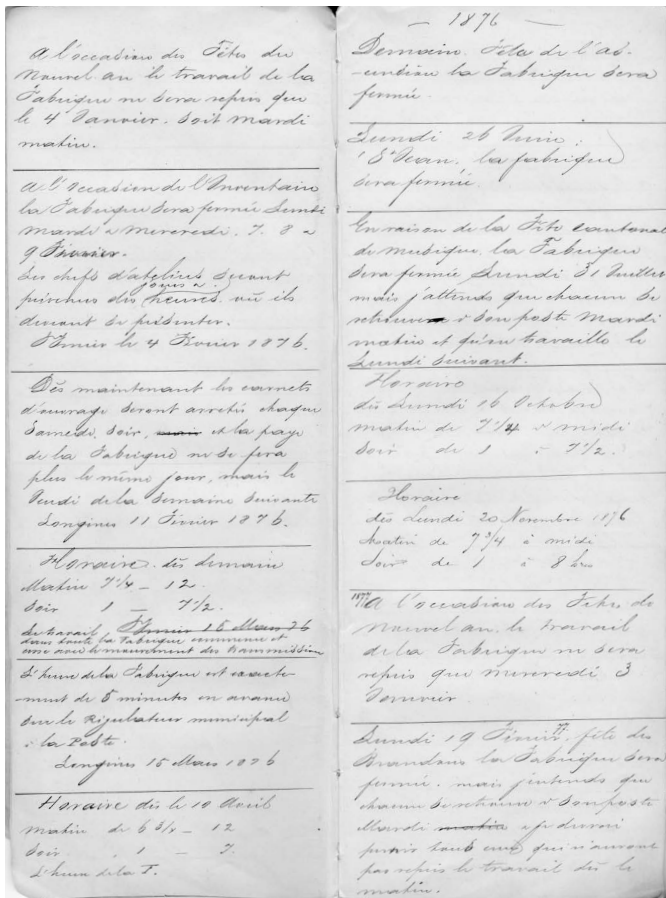 A l'occasion des Fêtes du
Nouvel an le travail de la
Fabrique ne sera repris que
le 4 Janvier. Soit mardi
matin.
A l'occasion de l'Inventaire
la Fabrique sera fermée Lundi
Mardi & Mercredi. 7. 8 &
9 Février.
Les chefs d'ateliers seront
jours &
prévenus des heures où ils
devront se présenter.
St Imier le 4 Février 1876.
Dès maintenant les carnets
d'ouvrage seront arrêtés chaque
Samedi soir, et la paye
de la Fabrique ne se fera
plus le même jour, mais le
Jeudi de la Semaine Suivante
Longines 11 Février 1876.
Horaire dès demain
Matin 7 1/4 – 12.
Soir 1 – 7 1/2.
Le travail St Imier 15 Mars 76
dans toute la Fabrique commence et
avec le mouvement des transmissions
L'heure de la Fabrique est exacte-
ment de 5 minutes en avance
sur le Régulateur municipal
à la Poste.
Longines 15 Mars 1876
Horaire dès le 10 Avril
Matin de 6 3/4 – 12
Soir " 1 – 7.
L'heure de la F.
— 1876 —
Demain. Fête de l'as-
-cension la Fabrique sera
fermée.
Lundi 26 Juin:
St Jean. la fabrique
sera fermée.
En raison de la Fête cantonale
de musique, la Fabrique
sera fermée Lundi 31 Juillet
mais j'attends que chacun se
retrouve à son poste Mardi
matin et qu'on travaille le
Lundi suivant.
Horaire
dès Lundi 16 Octobre
matin de 7 1/4 à midi
Soir de 1 à 7 1/2.
Horaire
dès Lundi 20 Novembre 1876
Matin de 7 3/4 à midi
Soir de 1 à 8 hres
1877 A l'occasion des Fêtes de
Nouvel an, le travail
de la Fabrique ne sera
repris que mercredi 3
Janvier
Lundi 19 Février 77, fête des
Brandons la Fabrique sera
fermée. mais j'entends que
chacun se retrouve à son poste
Mardi matin & je devrai
punir tous ceux qui n'auront
pas repris le travail dès le
matin.